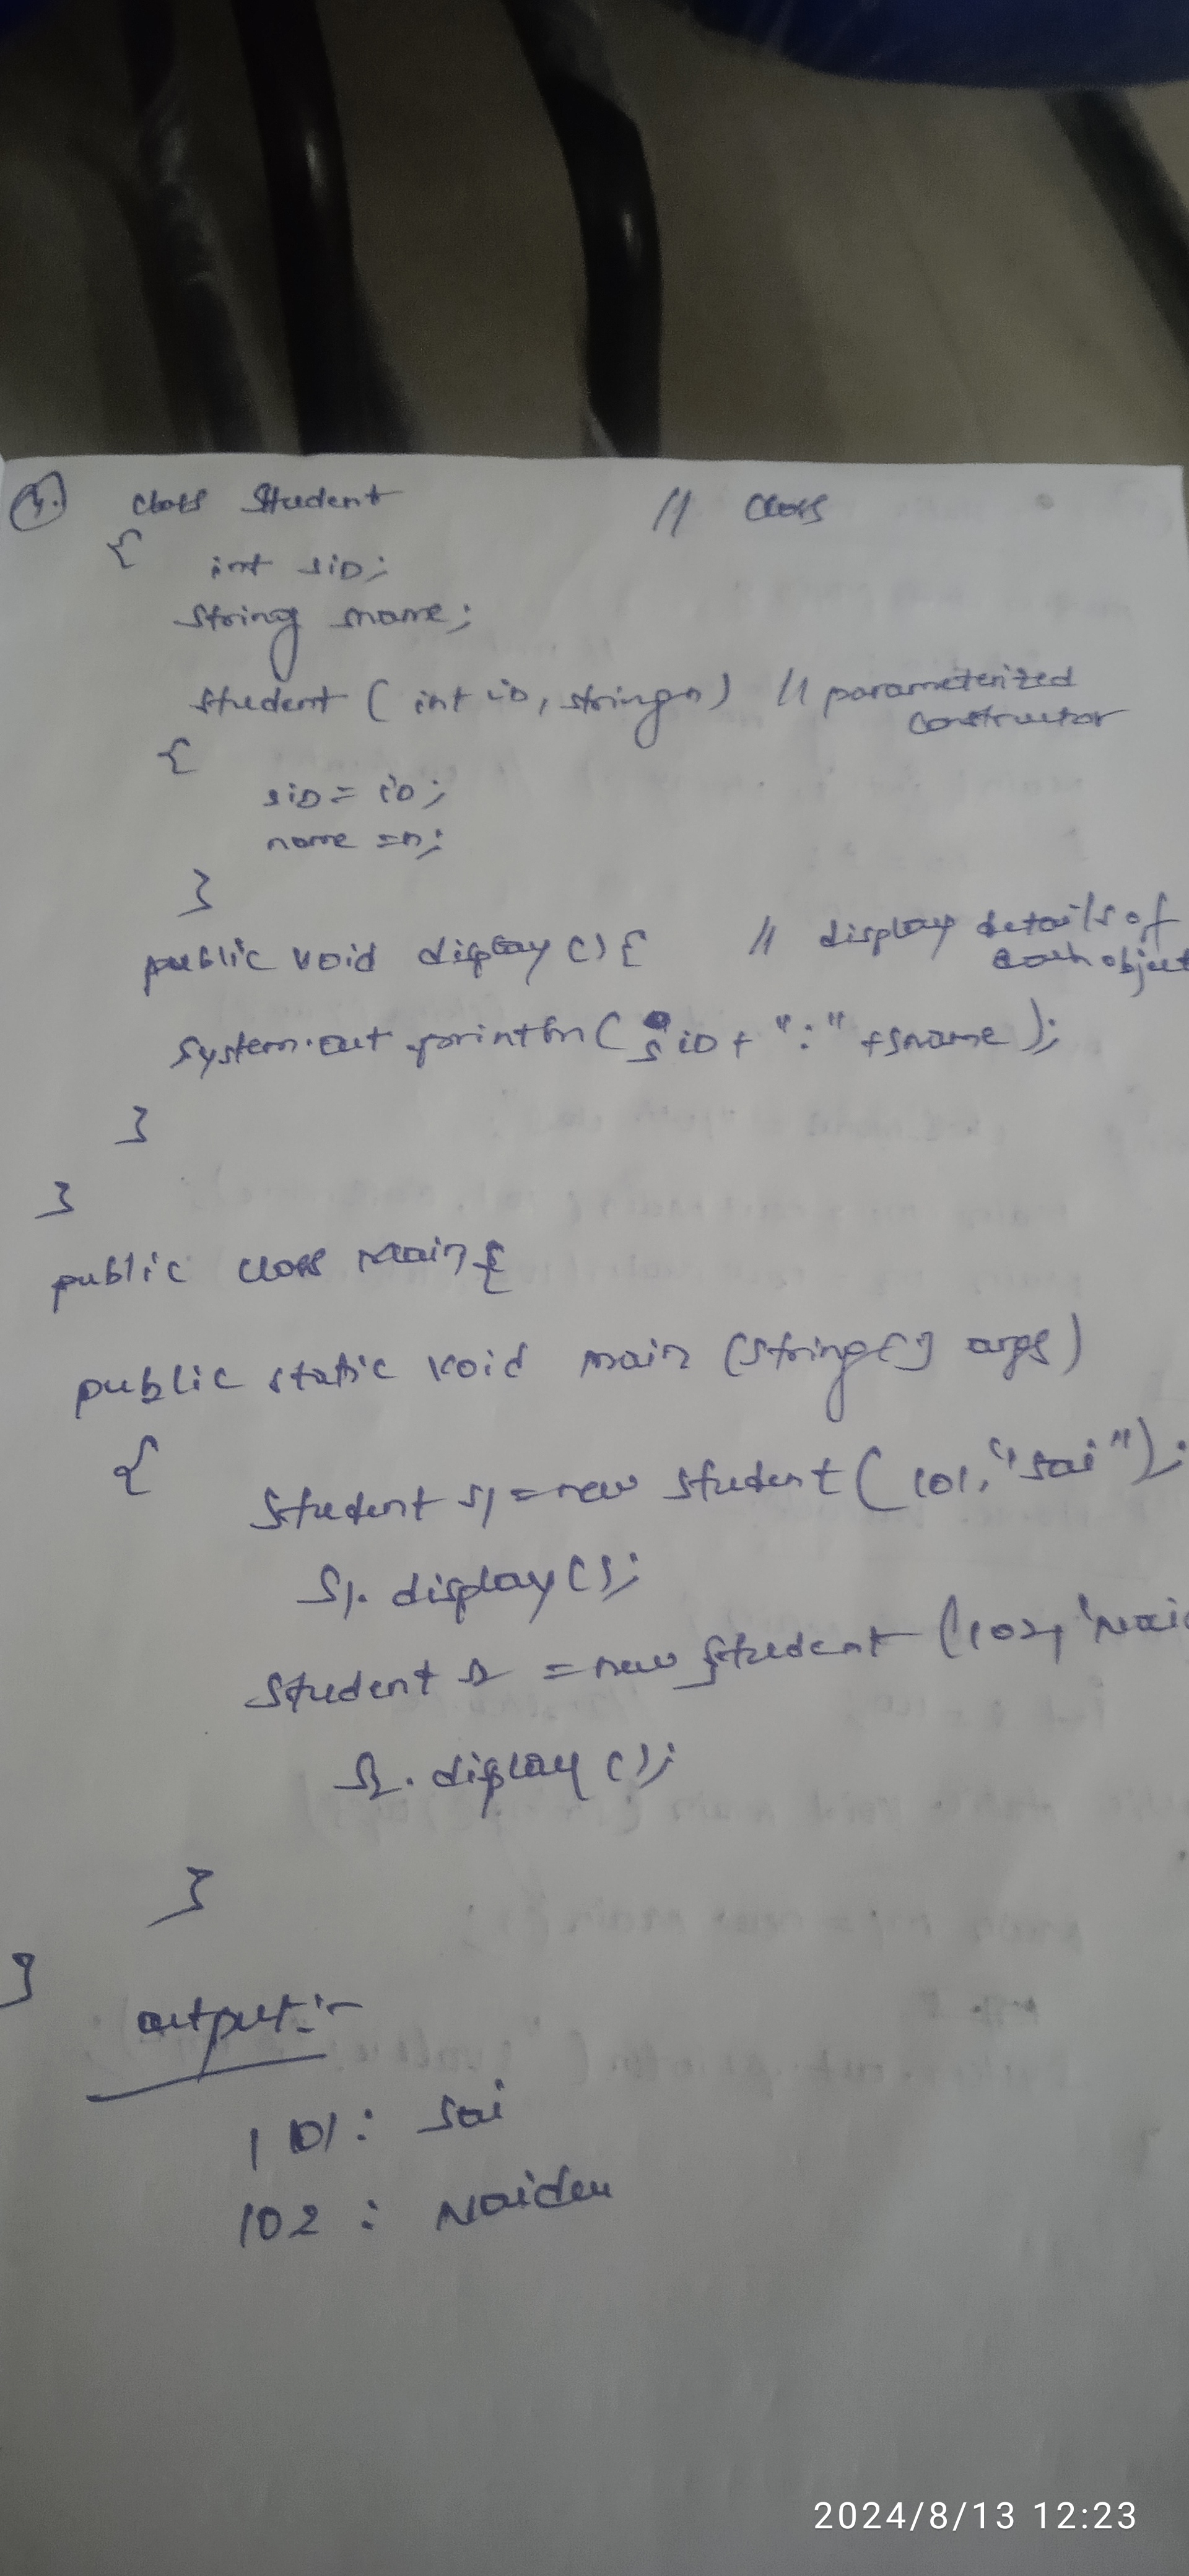 4. class Student // class
{ int siD;
String sname;
Student ( int iD, string n) // parameterized
constructor
{
siD = iD;
name = n;
}
public void display () { // display details of
each object
System.out.println( siD + ":" + sname );
}
}
public class Main {
public static void main (String [] args)
{
Student s1 = new Student ( 101, "Sai" );
S1. display ();
Student s2 = new Student (102, "Nai
S2. display ();
}
}
output:-
101 : Sai
102 : Naidu
2024/8/13 12:23